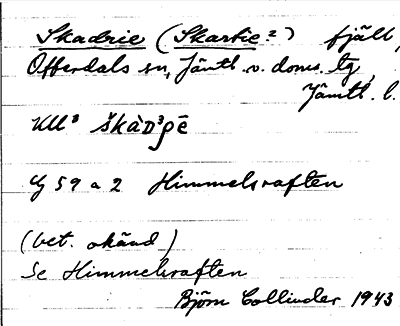 Skadrie (Skarbie?) fjäll,
Offerdals sn, Jämtl. v. doms. tg,
Jämtl. l.
škàD³ρē
59 a 2 Himmelsraften
(bet. okänd)
Se Himmelsraften
Björn Collinder 1943